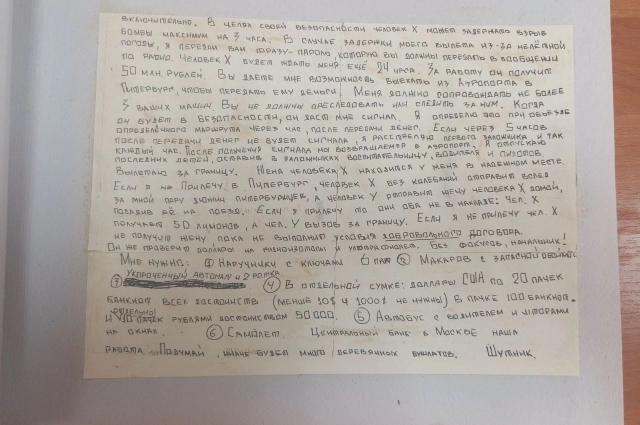 включительно. В целях своей безопасности человек X может задержать взрыв
бомбы максимум на 3 часа. В случае задержки моего вылета из-за нелётной
погоды, я передам вам фразу-пароль которую вы должны передать в сообщении
по радио. Человек X будет ждать меня ещё 24 часа. За работу он получит
50 млн. рублей. Вы даете мне возможность выехать из аэропорта в
Питербург, чтобы передать ему деньги. Меня должно сопровождать не более
3 ваших машин. Вы не должны преследовать или следить за ним. Когда
он будет в безопасности, он даст мне сигнал. Я определю это при объезде
определённого маршрута через час, после передачи денег. Если через 5 часов
после передачи денег не будет сигнала, я расстреляю первого заложника и так
каждый час. После получения сигнала мы возвращаемся в аэропорт. Я отпускаю
последних детей, оставив в заложниках воспитательницу, водителя и пилотов.
Вылетаю за границу. Жена человека X находится у меня в надёжном месте.
Если я не прилечу в Питербург, человек X без колебаний отправит вслед
за мной пару дюжин питербуржцев, а человек Y отправит жену человека X домой,
посадив её на поезд. Если я прилечу то они оба не в накладе: чел. X
получает 50 лимонов, а чел. Y вызов за границу. Если я не прилечу чел. X
не получит жену пока не выполнит условия добровольного договора.
Он же проверит доллары на Без фокусов, начальник!
Мне нужно: ① Наручники с ключами 6 пар ② Макаров с запасной обоймой
③ Укороченный автомат и 2 рожка
④ В отдельной сумке: доллары США по 20 пачек
банкнот всех достоинств (меньше 10$ и 1000$ не нужны) в пачке 100 банкнот.
и отдельно 30 пачек рублями достоинством 50000. ⑤ Автобус с водителем и шторами
на окнах. ⑥ Самолёт. Центральный банк в Москве наша
работа. Подумай, иначе будет много деревянных бушлатов. Шутник.